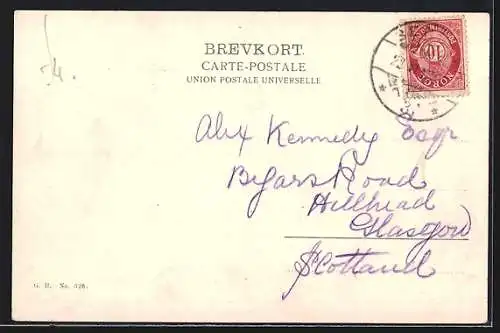 BREVKORT.
CARTE-POSTALE
UNION POSTALE UNIVERSELLE
10
NORGE
Alex Kennedy Esqr
Byars Road
Hillhead
Glasgow
Scotland
G. H. No. 326.